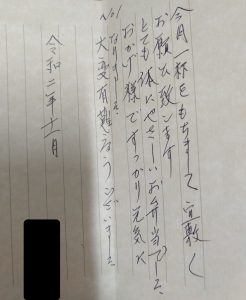 今月一杯をもちまして宜敷く
お願い致します
とても体にやさしいお弁当でした
おかげ様ですっかり元気に
なりました
大変有難うございました
令和二年十一月